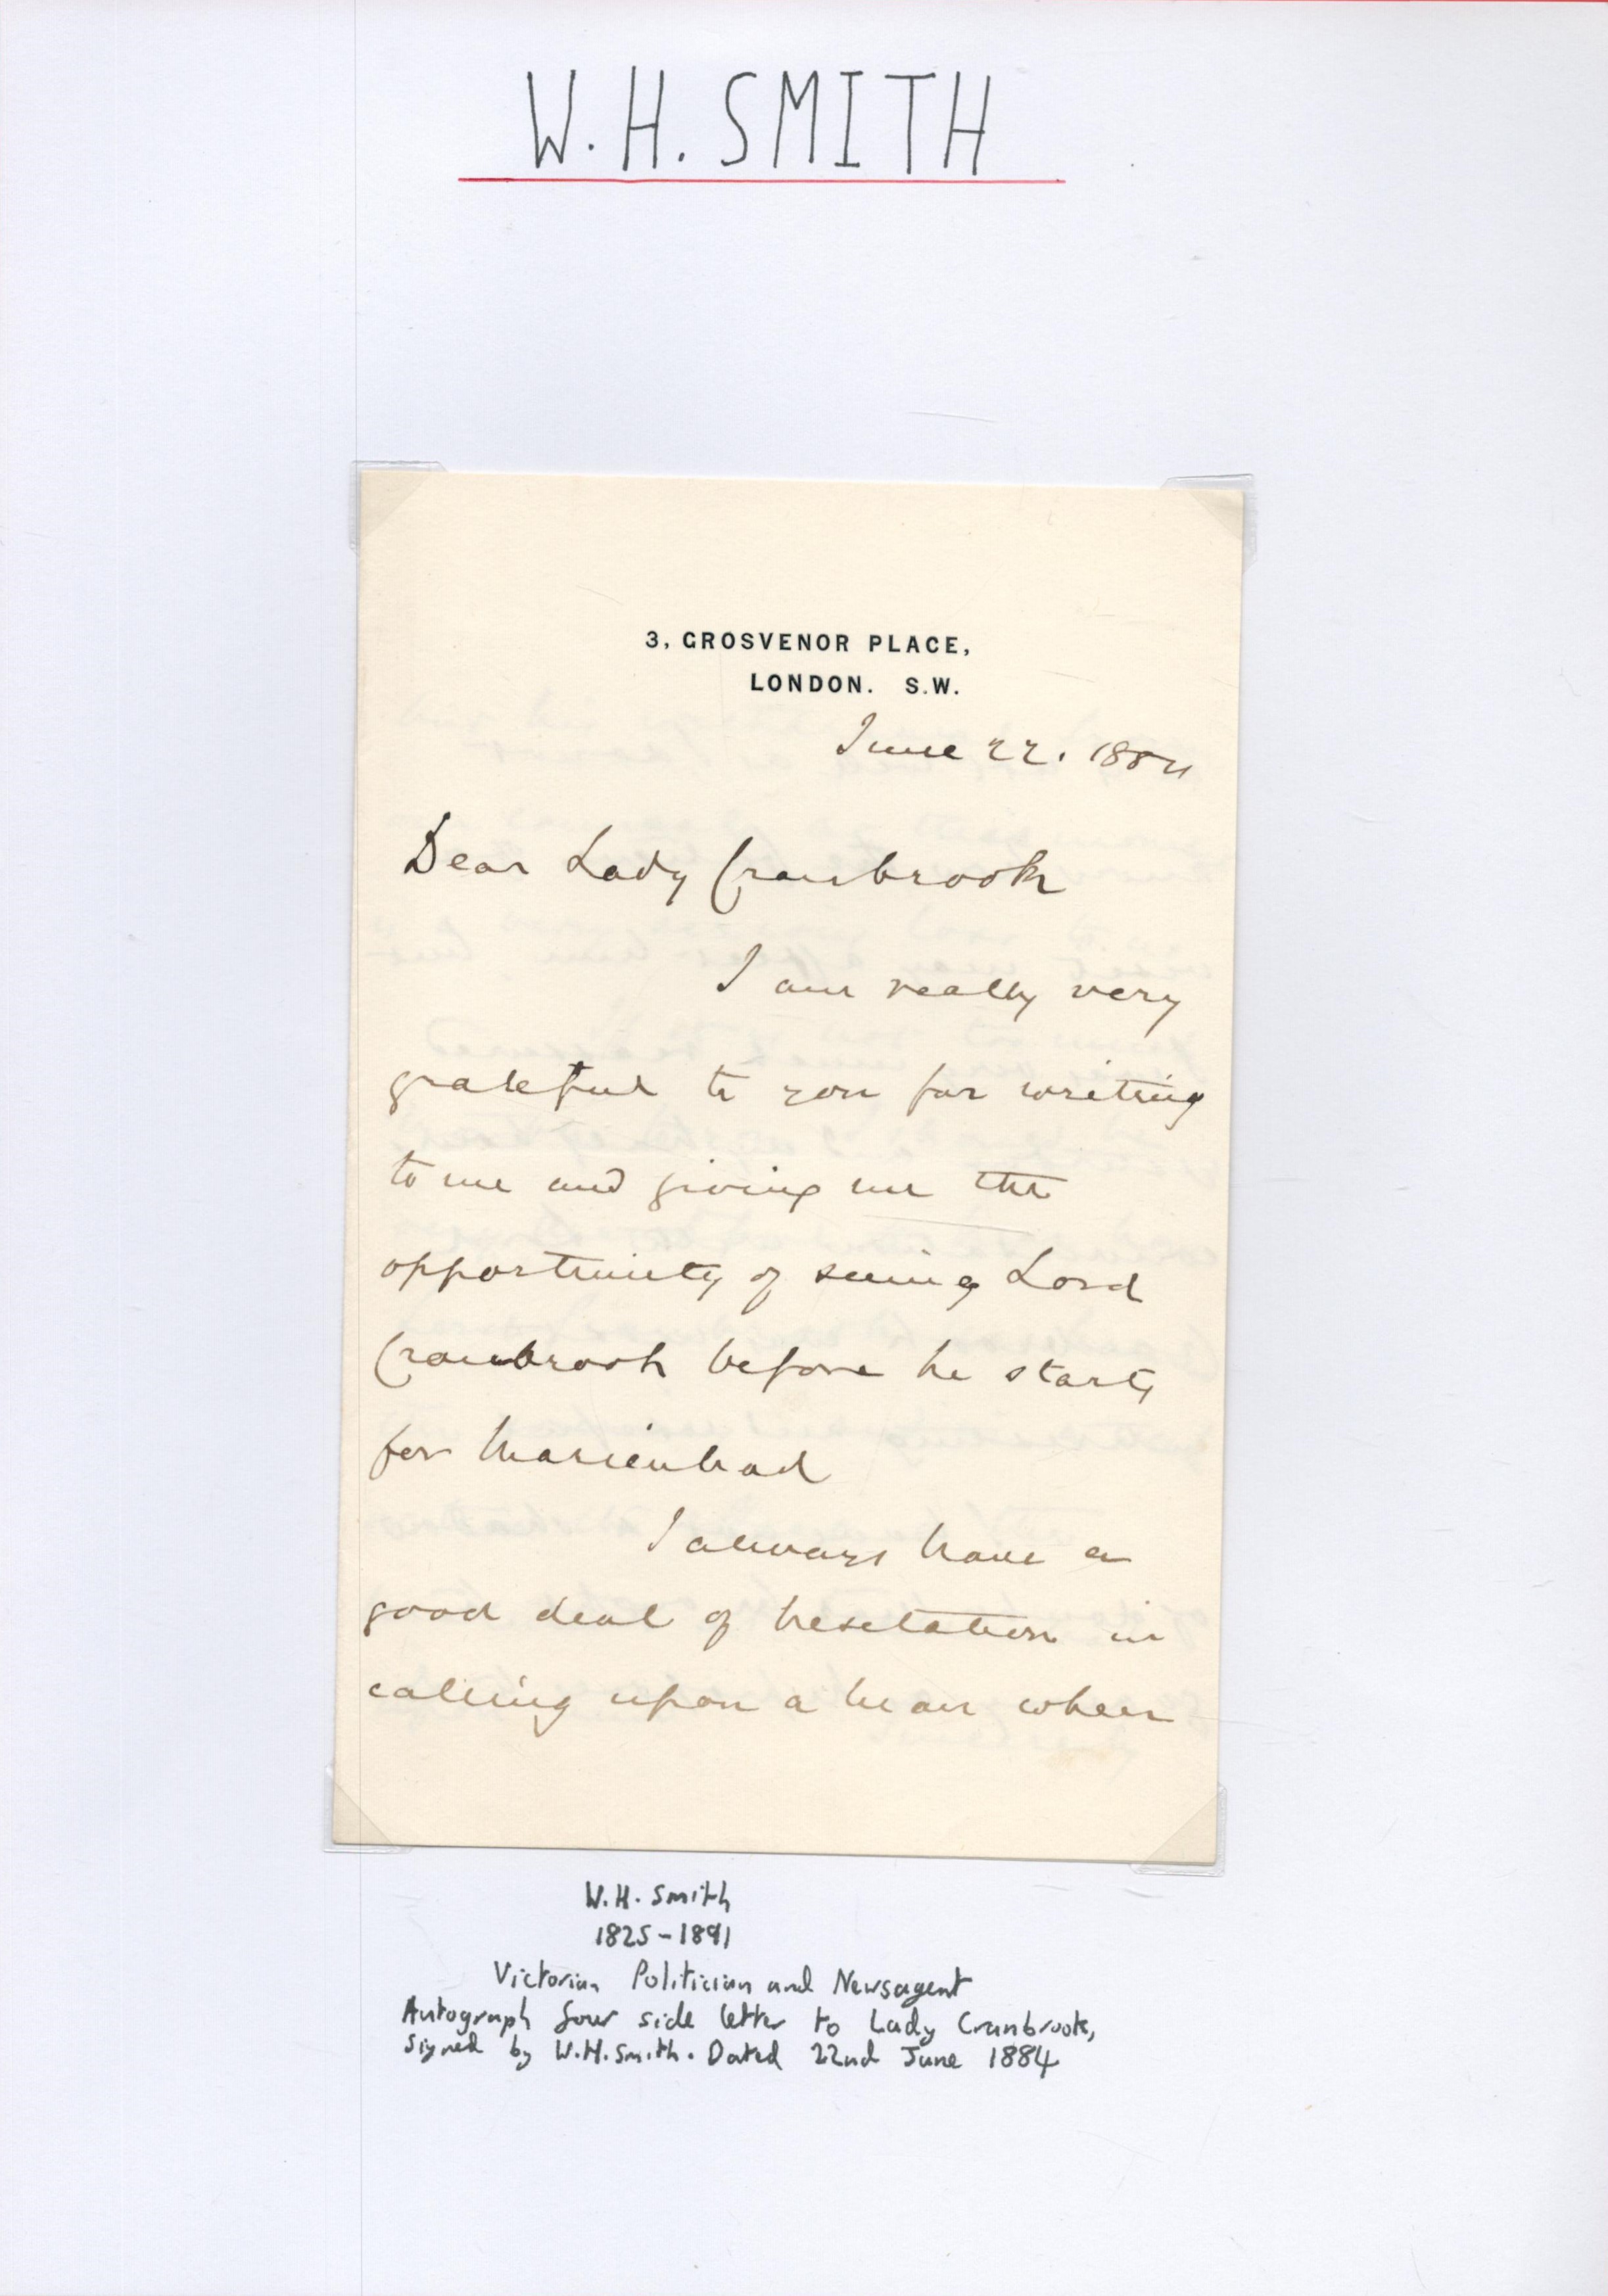 W. H. SMITH
3, GROSVENOR PLACE,
LONDON. S.W.
June 22. 1884
Dear Lady Cranbrook
I am really very
grateful to you for writing
to me and giving me the
opportunity of seeing Lord
Cranbrook before he starts
for Marienbad
I always have a
good deal of hesitation in
calling upon a man when
W. H. Smith
1825-1891
Victorian Politician and Newsagent
Autograph four side letter to Lady Cranbrook,
signed by W.H. Smith. Dated 22nd June 1884